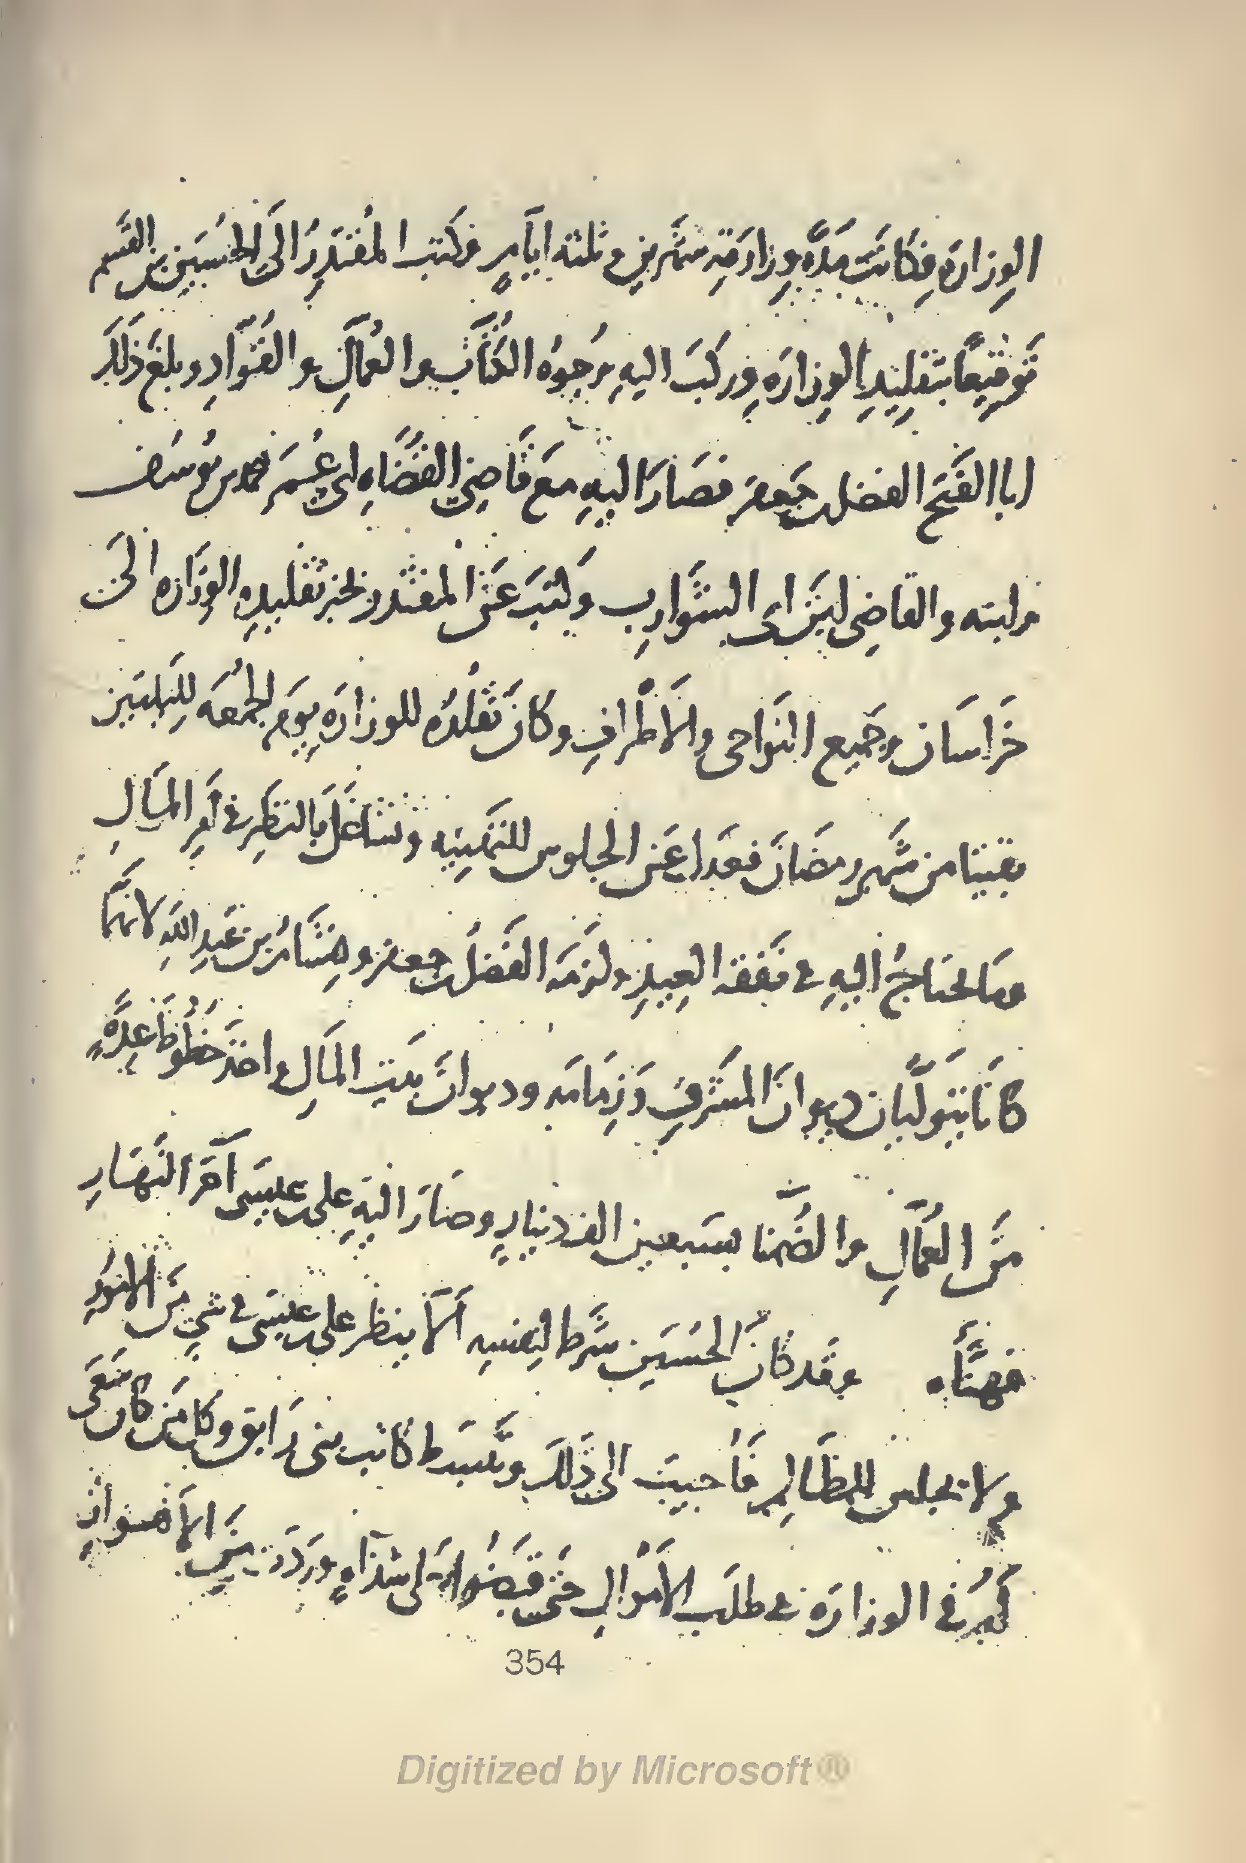 الوِزارَه فكَانت مدَّه وزارَتِه شهرين وثلثه ايّامٍ وكتب المُقتَدِرُ الىَ الحُسَين بن القسم
تَوقيعًا بتقليدِ الوِزارَه وركبَ اليهِ وُجوهُ الكُتّابِ والعُمّالِ والقُوّادِ وبلغ ذلك
ابا الفَتح الفضل بن جَعفر فصَارَ اليهِ معَ قاضِى القُضَاهِ ابى عُمَر محمد بن يوسُف
وابنه والقاضِى ابن ابى الشوارِب وكتبَ عَن المقتدر بخبر تقليدِه الوِزَاره الى
خَراسَان وجَميع النَواحى والاَطْرافِ وكانَ تقلُّدُه للوزارَه يوَم الجُمعَه لليلتين
بقيتا من شَهر رمضانَ فعَدا عَن الجلوس للتهنِيَه وتشاغلَ بالنَظرِ فى اَمرِ المَالِ
وما يحتاجُ اليهِ فى نفقه العِيدِ ولزمَه الفَضلُ بن جعفر وهِشامُ بن عَبدِ اللهِ لانّهما
كانا يتولَّيان ديوانَ المشرِقِ وَزِمَامَه وديوانَ بيتِ المَالِ واخذَ خُطُوطَ عِدَّهٍ
مَن العُمّالِ والضُّمنا بسَبعين الف دينارٍ وصَارَ اليهِ على بن عيسَى آخرَ النَهَارِ
فهنّاه وقَد كانَ الحُسَين شَرط لنفسِه اَلاّ ينظر على بن عيسَى فى شىٍ مِنَ الامُورِ
ولا يجلس للمظَالِم فاُجيبَ الى ذلكَ وتبسَّط كاتب بنى رَابق وكان من كان سَعَى
لَهُ فى الوزارَه فى طلَب الاَمْوالِ حَتى قبضُوا على شذآهٍ ورَدَت مِنَ الاَهْوازِ
354
Digitized by Microsoft®